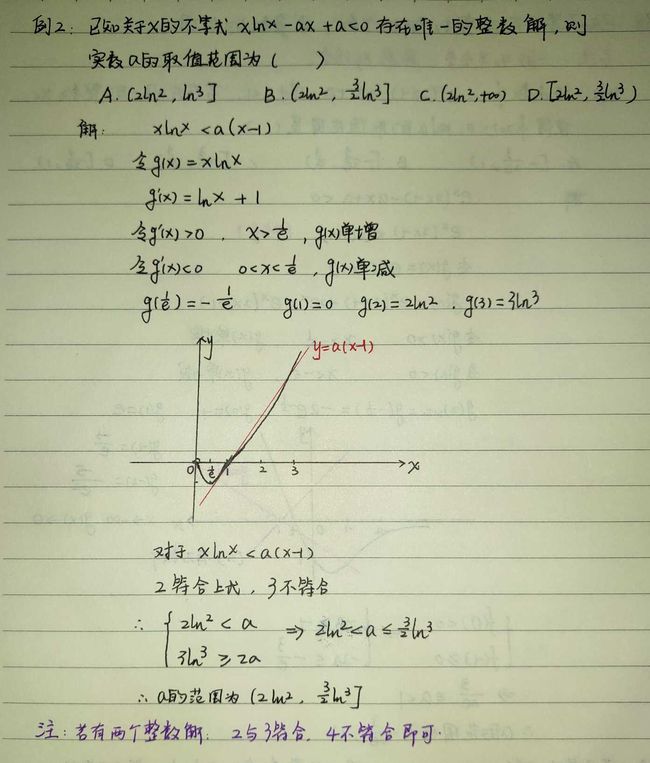 例2：已知关于x的不等式 xlnx-ax+a<0 存在唯一的整数解，则
实数a的取值范围为（ ）
A. (2ln2, ln3] B. (2ln2, 3/2 ln3] C. (2ln2, +∞) D. [2ln2, 3/2 ln3)
解： xlnx<a(x-1)
令g(x)=xlnx
g'(x)=lnx+1
令g'(x)>0 , x>1/e , g(x)单增
令g'(x)<0 0<x<1/e , g(x)单减
g(1/e)=-1/e g(1)=0 g(2)=2ln2 . g(3)=3ln3
y
y=a(x-1)
0 1/e 1 2 3 x
对于 xlnx<a(x-1)
2符合上式，3不符合
∴ { 2ln2<a 3ln3≥2a ⇒ 2ln2<a≤3/2 ln3
∴ a的范围为 (2ln2, 3/2 ln3]
注：若有两个整数解：2与3符合，4不符合即可.